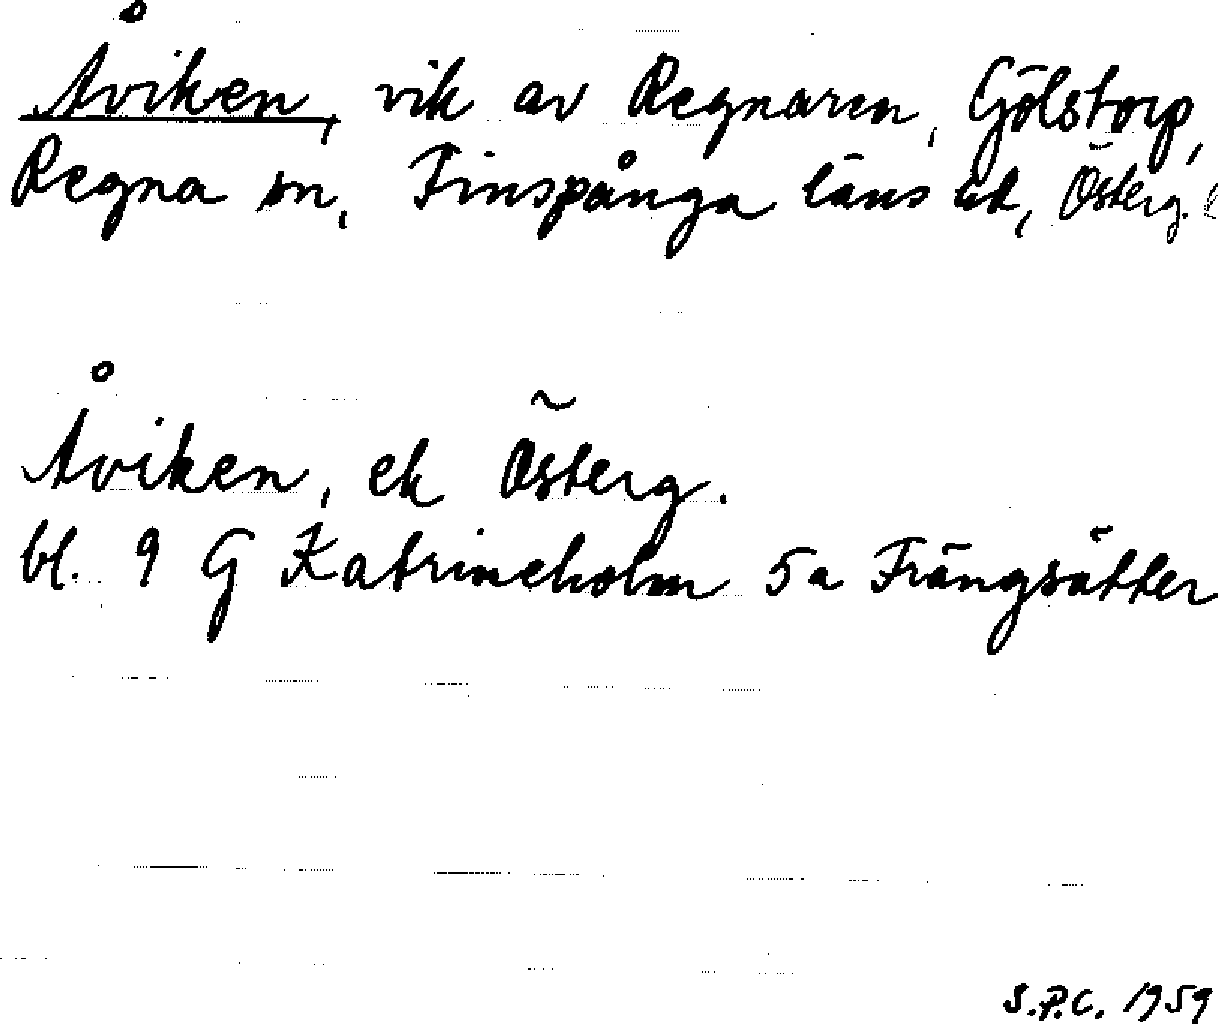 Åviken, vik av Regnaren, Gölstorp,
Regna sn, Finspånga läns hd, Österg. l
Åviken, ek Österg.
bl. 9 G Katrineholm 5a Frängsätter
S.P.C. 1959